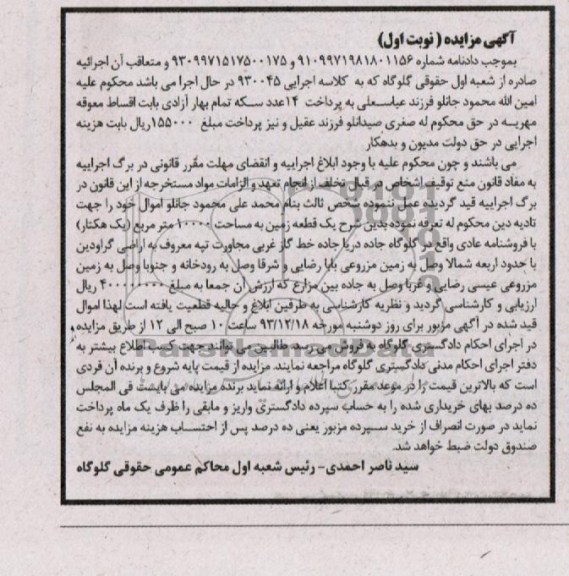 آگهی مزایده (نوبت اول)
بموجب دادنامه شماره ۹۱۰۹۹۷۱۹۸۱۸۰۱۱۵۶ و ۹۳۰۹۹۷۱۵۱۷۵۰۰۱۷۵ و متعاقب آن اجرائیه
صادره از شعبه اول حقوقی گلوگاه که به کلاسه اجرایی ۹۳۰۰۴۵ در حال اجرا می باشد محکوم علیه
امین الله محمود جانلو فرزند عباسعلی به پرداخت ۱۴عدد سکه تمام بهار آزادی بابت اقساط معوقه
مهریه در حق محکوم له صغری صیدانلو فرزند عقیل و نیز پرداخت مبلغ ۱۵۵۰۰۰ریال بابت هزینه
اجرایی در حق دولت مدیون و بدهکار
می باشند و چون محکوم علیه با وجود ابلاغ اجراییه و انقضای مهلت مقرر قانونی در برگ اجراییه
به مفاد قانون منع توقیف اشخاص در قبال تخلف از انجام تعهد و الزامات مواد مستخرجه از این قانون در
برگ اجراییه قید گردیده عمل ننموده شخص ثالث بنام محمد علی محمود جانلو اموال خود را جهت
تادیه دین محکوم له تعرفه نموده بدین شرح یک قطعه زمین به مساحت ۱۰۰۰۰ متر مربع (یک هکتار)
با فروشنامه عادی واقع در گلوگاه جاده دریا جاده خط گاز غربی مجاورت تپه معروف به اراضی گراودین
با حدود اربعه شمالا وصل به زمین مزروعی بابا رضایی و شرقا وصل به رودخانه و جنوبا وصل به زمین
مزروعی عیسی رضایی و غربا وصل به جاده بین مزارع که ارزش آن جمعا به مبلغ ۴۰۰۰۰۰۰۰۰ ریال
ارزیابی و کارشناسی گردید و نظریه کارشناسی به طرفین ابلاغ و حالیه قطعیت یافته است لهذا اموال
قید شده در آگهی مزبور برای روز دوشنبه مورخه ۹۳/۱۲/۱۸ ساعت ۱۰ صبح الی ۱۲ از طریق مزایده
در اجرای احکام دادگستری گلوگاه به فروش می رسد طالبین می توانند جهت کسب اطلاع بیشتر به
دفتر اجرای احکام مدنی دادگستری گلوگاه مراجعه نمایند. مزایده از قیمت پایه شروع و برنده آن فردی
است که بالاترین قیمت را در موعد مقرر کتبا اعلام و ارائه نماید برنده مزایده می بایست فی المجلس
ده درصد بهای خریداری شده را به حساب سپرده دادگستری واریز و مابقی را ظرف یک ماه پرداخت
نماید در صورت انصراف از خرید سپرده مزبور یعنی ده درصد پس از احتساب هزینه مزایده به نفع
صندوق دولت ضبط خواهد شد.
سید ناصر احمدی- رئیس شعبه اول محاکم عمومی حقوقی گلوگاه
ParsNamadData